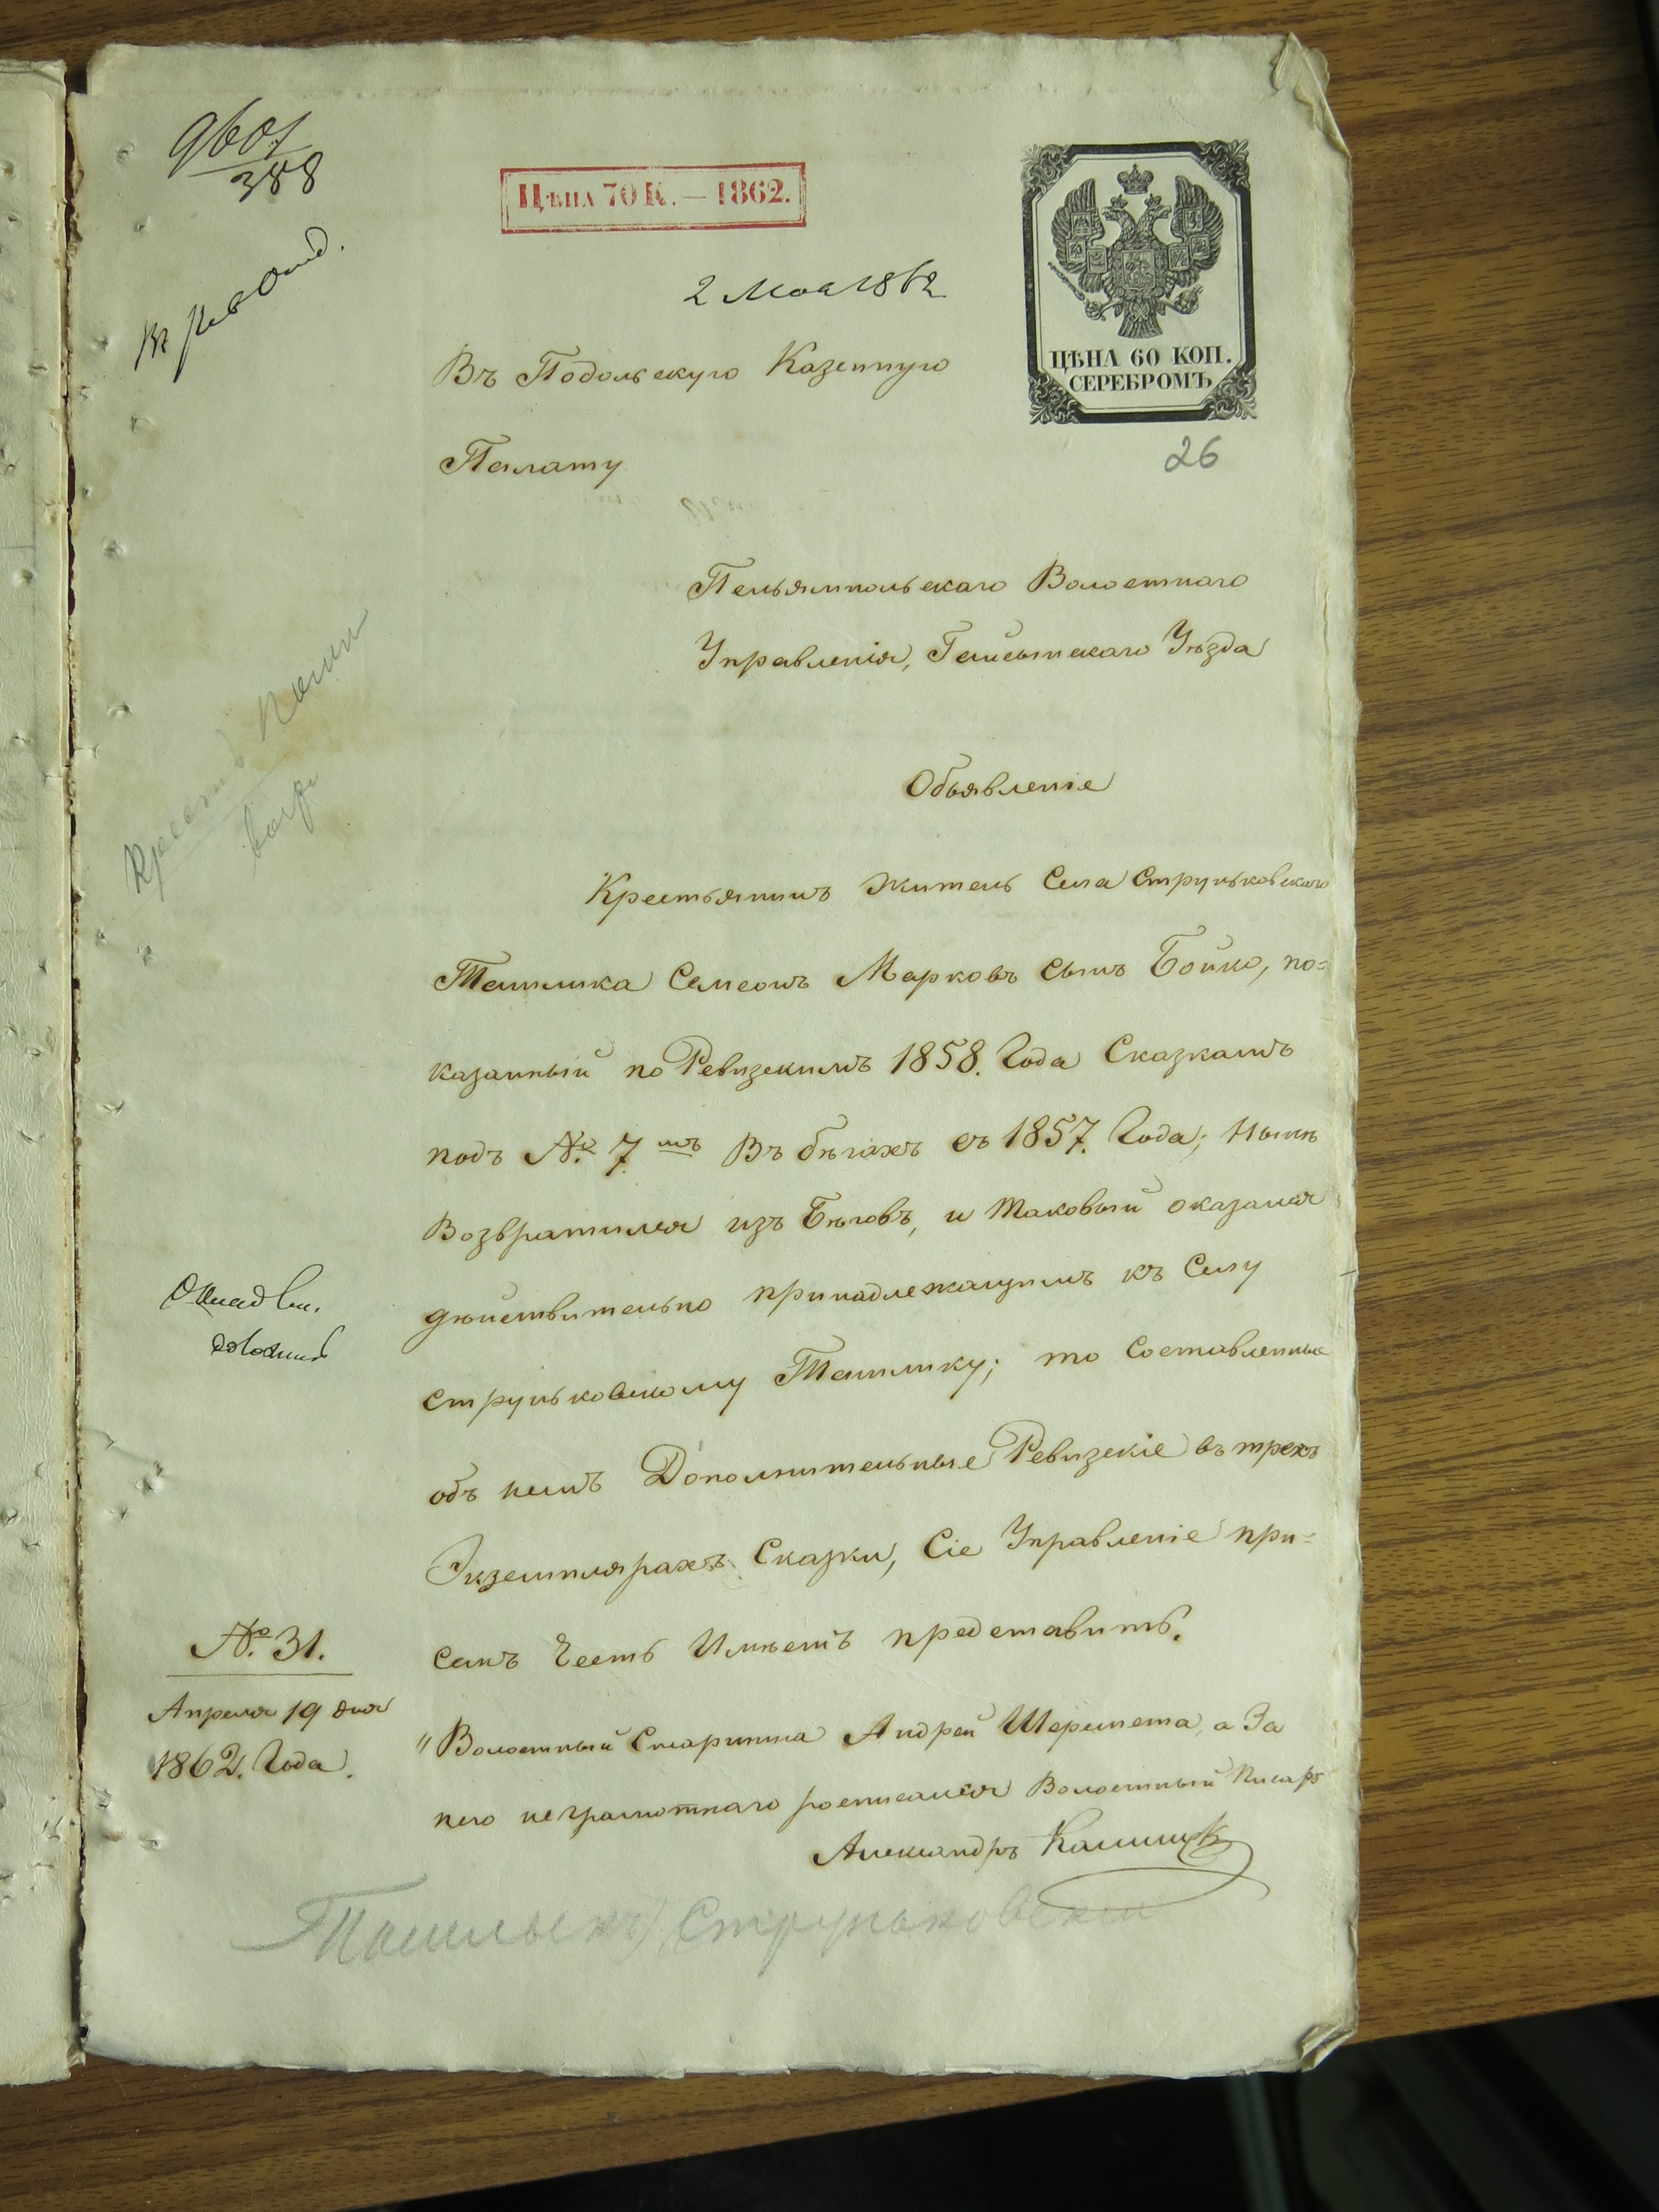 9601
388
Цѣна 70 К. — 1862.
2 Мая 1862
ЦѢНА 60 КОП.
СЕРЕБРОМЪ
26
Въ Подольскую Казенную
Палату
Волостнаго
Управленія, Гайсынскаго Уѣзда
Объявленіе
Крестьянинъ житель Села Струньковскаго
Ташлика Семеонъ Марковъ сынъ Бойко, по=
казанный по Ревизскимъ 1858. Года Сказкамъ
подъ №. 7мъ Въ бѣгахъ съ 1857. Года; Нынѣ
Возвратился изъ Бѣговъ, и таковый оказался
дѣйствительно принадлежащимъ къ Селу
Струньковскому Ташлику; то Составленные
объ немъ Дополнительные Ревизскіе въ трехъ
Экземплярахъ Сказки, Сіе Управленіе при=
семъ Честь Имѣетъ представить.
№. 31.
Апреля 19 дня
1862. Года.
"Волостный Старшина Андрей Шеремета, а За
него неграмотнаго росписался Волостный Писарь
Александръ
Ташлыкъ Струньковскій